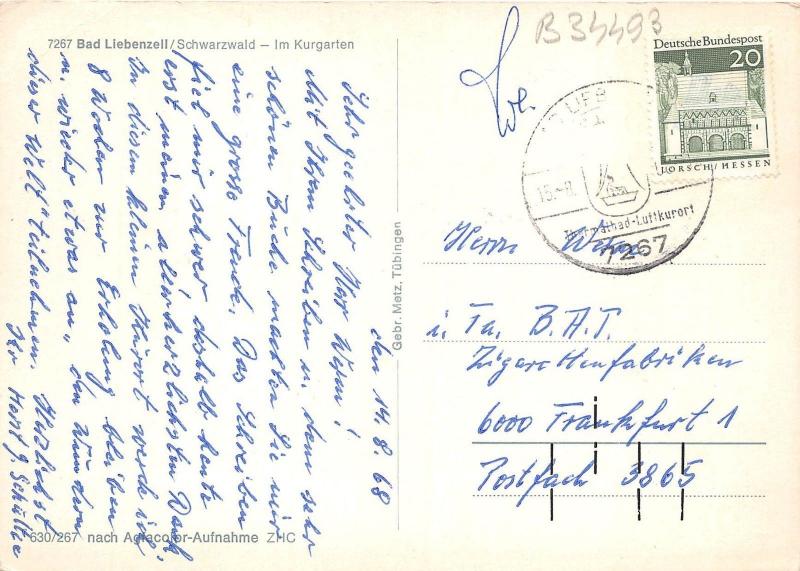 7267 Bad Liebenzell/Schwarzwald – Im Kurgarten
den 14.8.68
Sehr geehrter Herr Wehn!
Mit Ihrem Schreiben u. dem sehr
schönen Buche machten Sie mir
eine große Freude. Das Schreiben
fiel mir schwer, deshalb heute
erst meinen allerherzlichsten Dank
In diesem kleinen Kurort werde ich
8 Wochen zur Erholung bleiben
u. wieder etwas an „den Wundern
dieser Welt" teilnehmen. Herzlichst
Ihr Horst G. Schulze
630/267 nach Agfacolor-Aufnahme ZHC
Gebr. Metz, Tübingen
B34493
Deutsche Bundespost
20
LORSCH/HESSEN
Thermalbad-Luftkurort
7267
Herrn Wehn
i. Fa. B.A.T.
Zigarettenfabriken
6000 Frankfurt 1
Postfach 3865